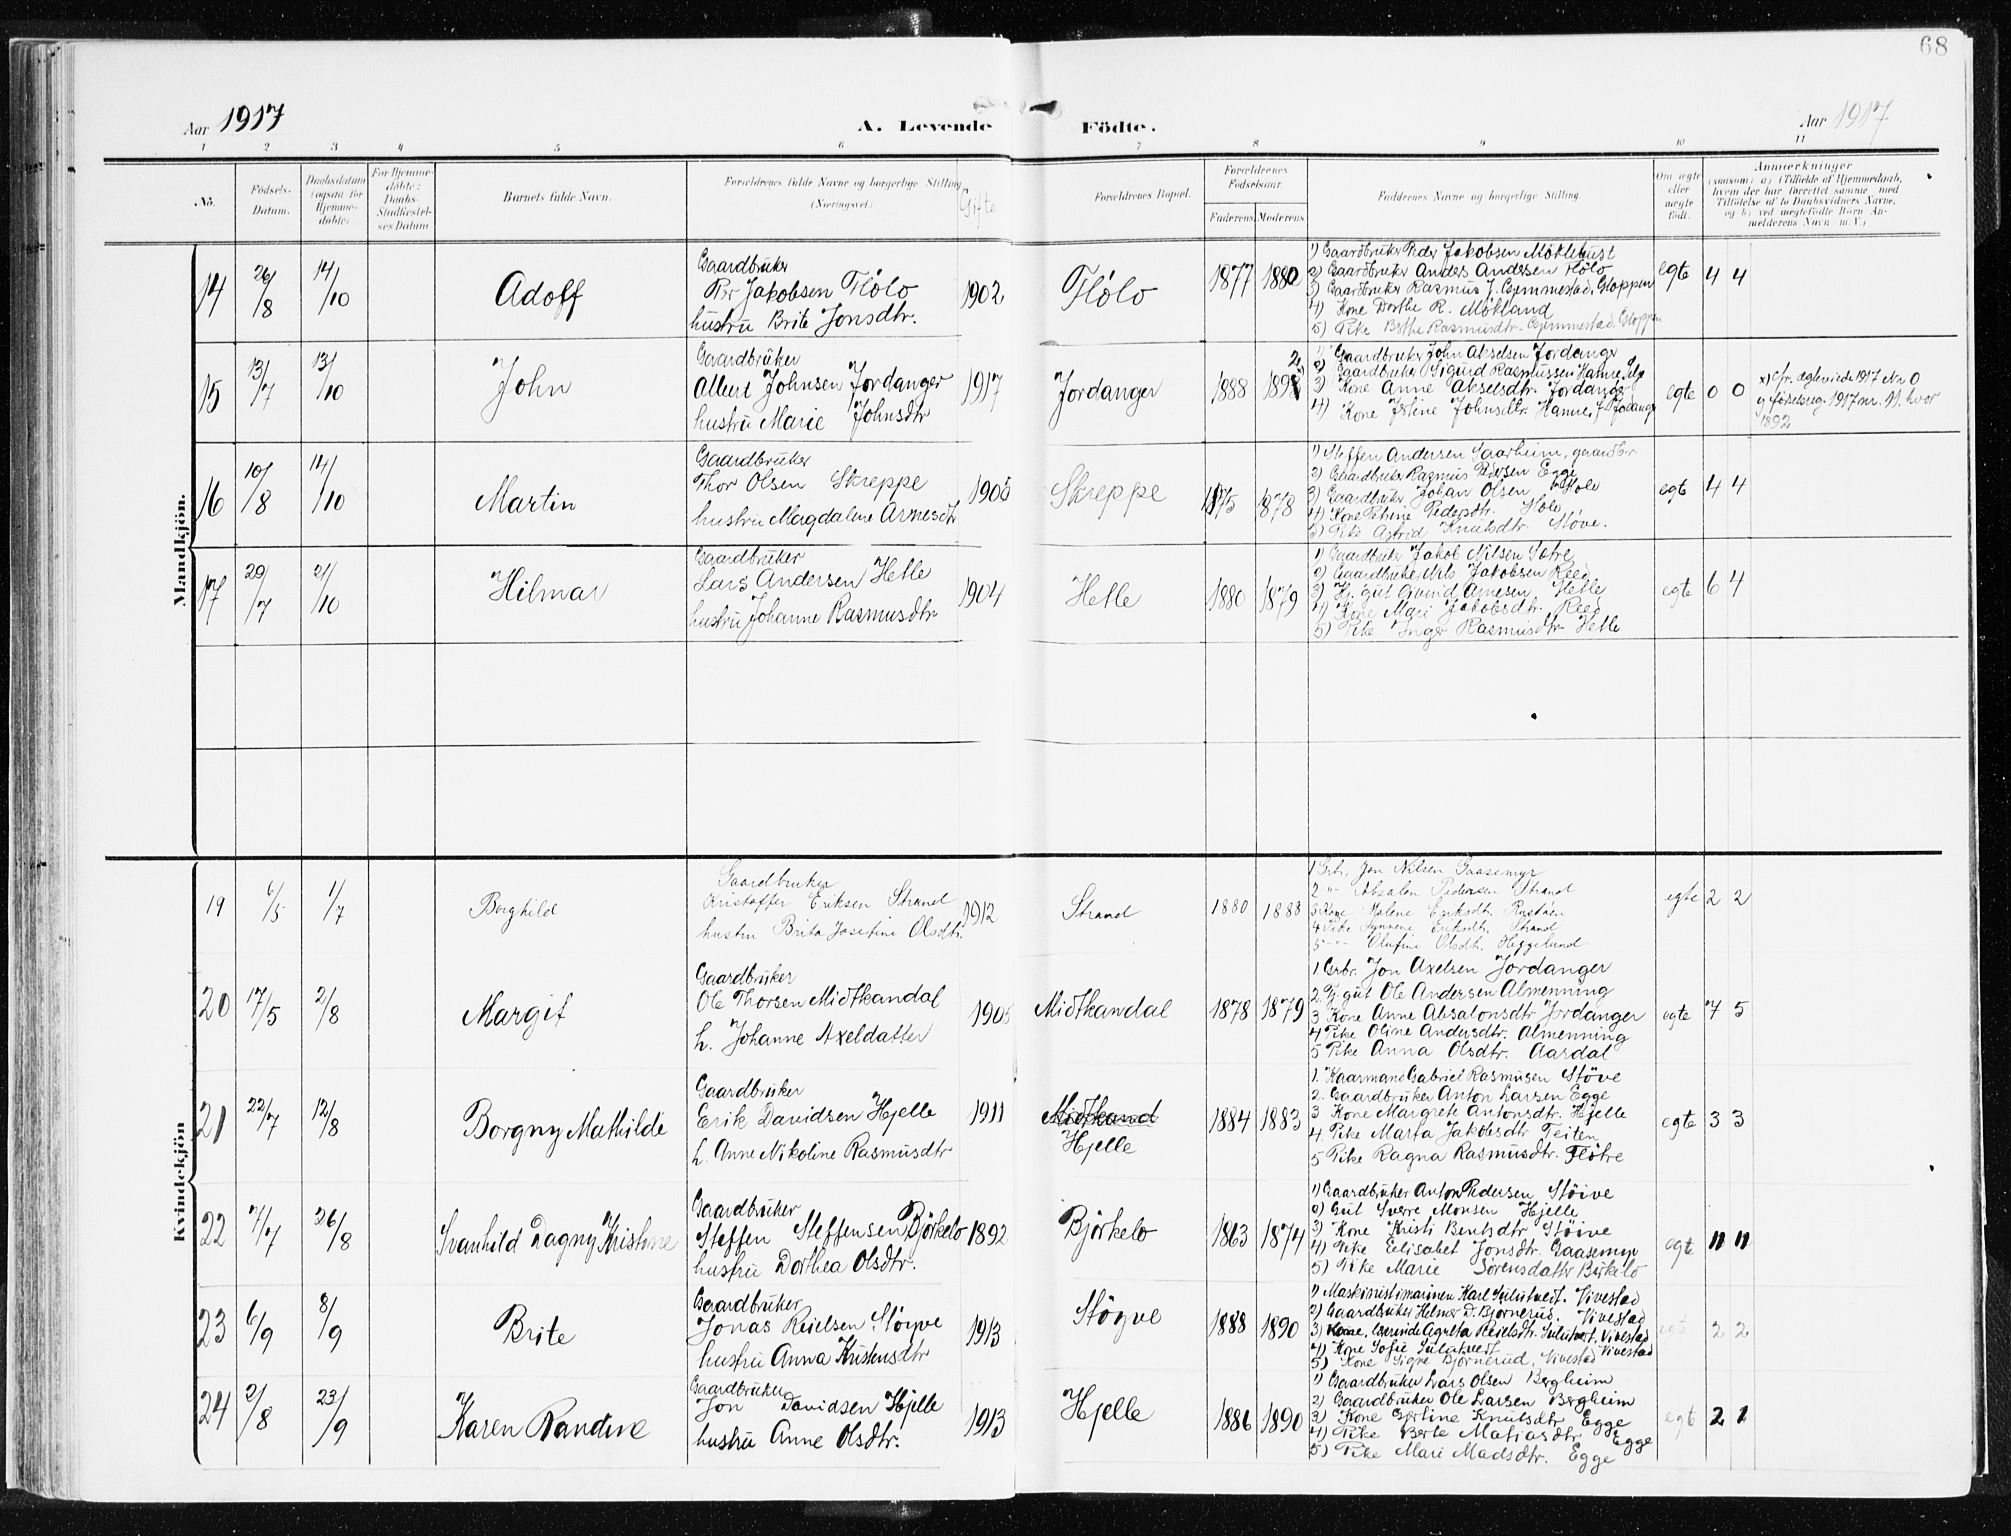 68
Aar 1917
A. Levende Födte.
Aar 1917
1 2 3 4 5 6 7 8 9 10 11
No.
Födsels-Datum.
Daabsdatum (ogsaa for Hjemme-döbte)
For Hjemme-döbte: Daabs-Stadfæstel-ses Datum
Barnets fulde Navn.
Forældrenes fulde Navne og borgerlige Stilling (Næringsvei.)
Gifte
Forældrenes Bopæl.
Forældrenes Födselsaar.
Faderens Moderens
Faddernes Navne og borgerlige Stilling.
Om ægte eller uægte födt.
Anmærkninger
(saasom: a) i Tilfælde af Hjemmedaab, hvem der har forrettet samme med Tilföielse af to Daabsvidners Navne, og b) ved uægtefödte Börn An-melderens Navn m. V.)
Mandkjön.
14 26/8 14/10 Adolf
Gaardbruker
Per Jakobsen Flölo
hustru Brite Jonsdtr.
1902 Flölo 1877 1880
1) Gaardbruker Peder Jakobsen Möklebust
2) Gaardbruker Anders Andersen Flölo
3) Gaardbruker Rasmus J. Gjemmestad, Gloppen
4) Kone Dorthe R. Mökland
5) Pike Berthe Rasmusdtr. Gjemmestad, Gloppen
egte 4 4
15 13/7 13/10 John
Gaardbruker
Albert Johnsen Jordanger
hustru Marie Johnsdtr
1917 Jordanger 1888 1892
1) Gaardbruker John Akselsen Jordanger
2) Gaardbruker Sigurd Rasmussen Hamre,
3) Kone Anne Akselsdtr. Jordanger
4) Kone Johnsdtr. Hamre,
egte 0 0
x) cfr. ægteviede 1917 Nr 0
og födselsreg. 1917 nr. 11. hvor
1892
16 10/8 14/10 Martin
Gaardbruker
Thor Olsen Skreppe
hustru Magdalene Arnesdtr
1905 Skreppe 1875 1878
1) Steffen Andersen Saarheim, gaardbr
2) Gaardbruker Rasmus Pedersen Egge
3) Gaardbruker Johan Olsen Hole
4) Kone Petrine Pedersdtr. Hole
5) Pike Astrid Knutsdtr. Stöve.
egte 4 4
17 29/7 21/10 Hilmar
Gaardbruker
Lars Andersen Hetle
hustru Johanne Rasmusdtr
1904 Hetle 1880 1879
1) Gaardbruker Jakob Nilsen Sætre
2) Gaardbruker Nils Jakobsen Reed
3) Tj. gut Eivind Arnesen Hetle
4) Kone Mari Jakobsdtr. Reed
5) Pike Inger Rasmusdtr. Hetle
egte 6 4
Kvindekjön
19 6/5 1/7 Borghild
Gaardbruker
Kristoffer Eriksen Strand
hustru Brita Josefine Olsdtr.
1912 Strand 1880 1888
1 Grbr. Jon Nilsen Gaasemyr
2 -"- Absalon Pedersen Strand
3 Kone Malene Eriksdtr. Rustöen
4 Pike Synneve Eriksdtr. Strand
5 -"- Olufine Olsdtr. Heggelund
egte 2 2
20 17/5 2/8 Margit
Gaardbruker
Ole Thorsen Midtkandal
h. Johanne Axeldatter
1905 Midtkandal 1878 1879
1. Grbr. Jon Axelsen Jordanger
2. Tj. gut Ole Andersen Almenning
3 Kone Anne Absalonsdtr Jordanger
4 Pike Oline Andersdtr. Almenning
5 Pike Anna Olsdtr. Aardal
egte 7 5
21 22/7 12/8 Borgny Mathilde
Gaardbruker
Erik Davidsen Hjelle
h. Anne Nikoline Rasmusdtr
1911 Midtkand
Hjelle 1884 1883
1. Kaarmand Gabriel Rasmusen Stöve
2. Gaardbruker Anton Larsen Egge
3 Kone Margrete Antonsdtr. Hjelle
4. Pike Marta Jakobsdtr Teiten
5 Pike Ragna Rasmusdtr. Flötre
egte 3 3
22 7/7 26/8 Svanhild Dagny Kristine
Gaardbruker
Steffen Steffensen Björkelo
hustru Dorthea Olsdtr.
1892 Björkelo 1863 1874
1) Gaardbruker Anton Pedersen Stöive
2) Gut Sverre Monsen Hjelle
3) Kone Kristi Bentsdtr Stöive
4) Pike Elisabet Jonsdtr. Gaasemyr
5) Pike Marie Sörensdatter Birkelo
egte 11 11
23 6/9 8/9 Brite
Gaardbruker
Jonas Reielsen Stöyve
hustru Anna Kristensdtr
1913 Stöyve 1888 1890
1) Maskinist i marinen Karl Vivestad
2) Gaardbruker Helmer D. Bjørnerud. Vivestad
3) Kone, Agneta Reielsdtr. Vivestad
4) Kone Sofie Vivestad
5) Kone Signe Bjørnerud, Vivestad
egte 2 2
24 2/8 23/9 Karen Randine
Gaardbruker
Jon Davidsen Hjelle
hustru Anne Olsdtr.
1913 Hjelle 1886 1890
1) Gaardbruker Lars Olsen Bergheim
2) Gaardbruker Ole Larsen Bergheim
3) Kone Gjertine Knutsdtr Egge
4) Pike Berte Matiasdtr Egge
5) Pike Mari Madsdtr. Egge
egte 2 1